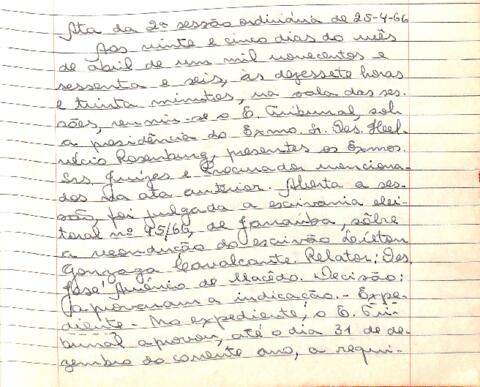 Ata da 2ª sessão ordinária de 25-4-66
Aos vinte e cinco dias do mês
de abril de um mil novecentos e
sessenta e seis, às dezessete horas
e trinta minutos, na sala das ses-
sões, reuniu-se o E. Tribunal, sob
a presidência do Exmo. Sr. Des. Hel-
vécio Rosenburg, presentes os Exmos.
Srs. Juízes e Procurador menciona-
dos na ata anterior. Aberta a ses-
são, foi julgada a escrivania elei-
toral nº 45/66, de Janaúba, sôbre
a recondução do escrivão
Gonzaga Cavalcante. Relator: Des.
José Américo de Macêdo. Decisão:
aprovaram a indicação. - Expe-
diente - No expediente, o E. Tri-
bunal aprovou, até o dia 31 de de-
zembro do corrente ano, a requi-